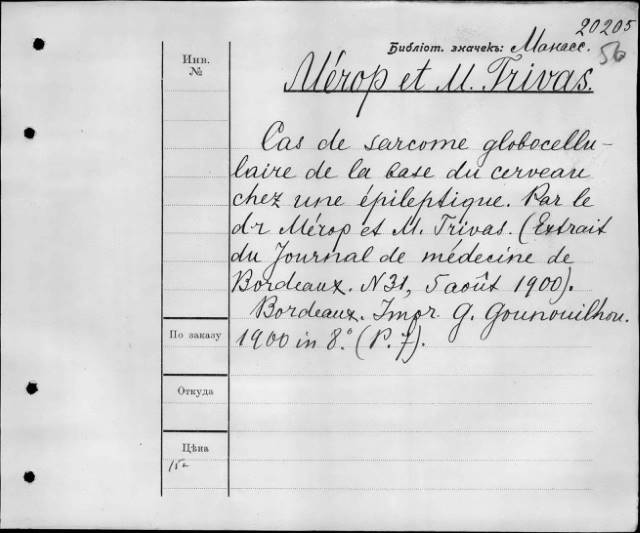 20205
Библіот. значекъ: Манасс.
56
Инв.
№
Mérop et M. Trivas.
Cas de sarcome globocellu-
laire de la base du cerveau
chez une épileptique. Par le
dr Mérop et M. Trivas. (Extrait
du Journal de médecine de
Bordeaux. N31, 5 août 1900).
Bordeaux. Impr G. Gounouilhou.
По заказу
1900 in 8.° (P. 7).
Откуда
Цѣна